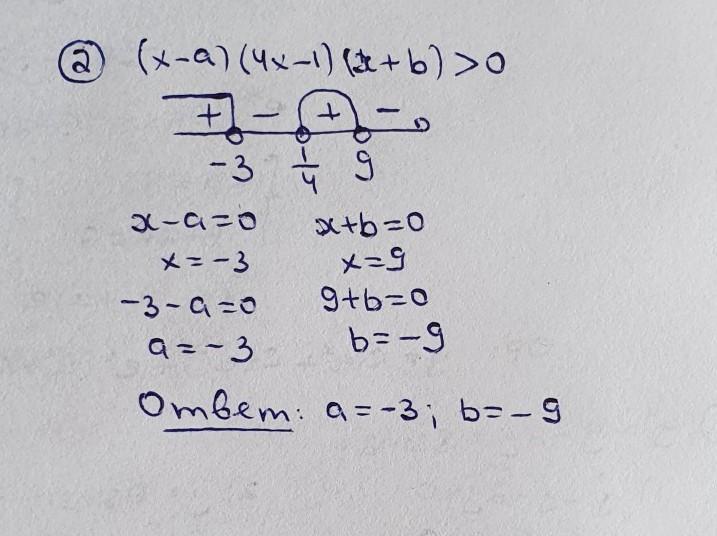 ② (x-a)(4x-1)(x+b)>0
+ - + -
-3 1/4 9
x-a=0 x+b=0
x=-3 x=9
-3-a=0 9+b=0
a=-3 b=-9
Ответ: a=-3; b=-9